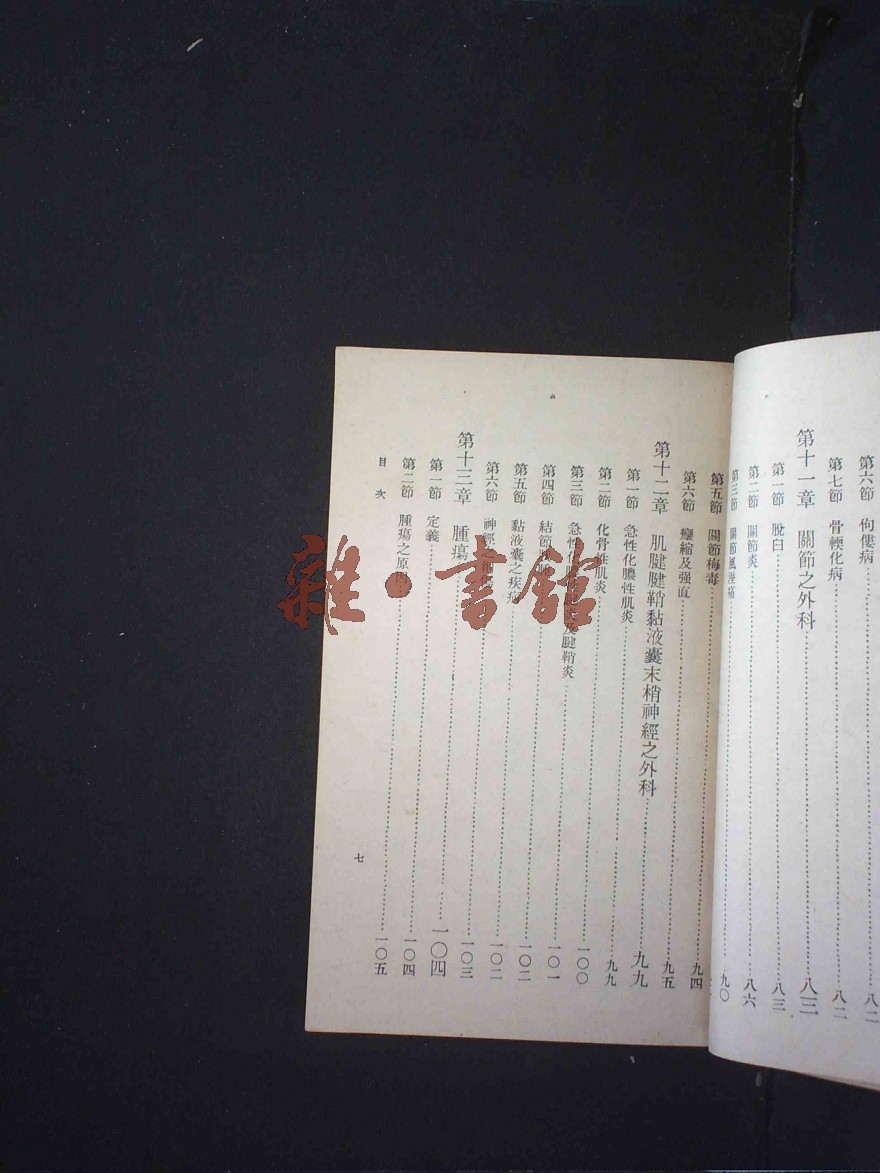 第六節 佝僂病 八二
第七節 骨輭化病 八二
第十一章 關節之外科 八三
第一節 脫臼 八三
第二節 關節炎 八六
第三節 關節風溼痛 九〇
第五節 關節梅毒 九四
第六節 攣縮及强直 九五
第十二章 肌腱腱鞘黏液囊末梢神經之外科 九九
第一節 急性化膿性肌炎 九九
第二節 化骨性肌炎 一〇〇
第三節 急性化膿性 及腱鞘炎 一〇一
第四節 結節 一〇二
第五節 黏液囊之疾病 一〇二
第六節 神經之 一〇三
第十三章 腫瘍 一〇四
第一節 定義 一〇四
第二節 腫瘍之原因 一〇五
目次
七
雜·書館